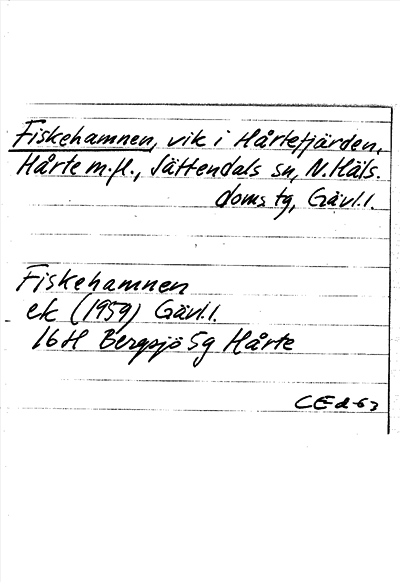 Fiskehamnen, vik i Hårtefjärden,
Hårte m.fl., Jättendals sn, N.Häls.
doms tg, Gävl.l.
Fiskehamnen
ek (1959) Gävl.l.
16H Bergsjö 5g Hårte
CEd-63